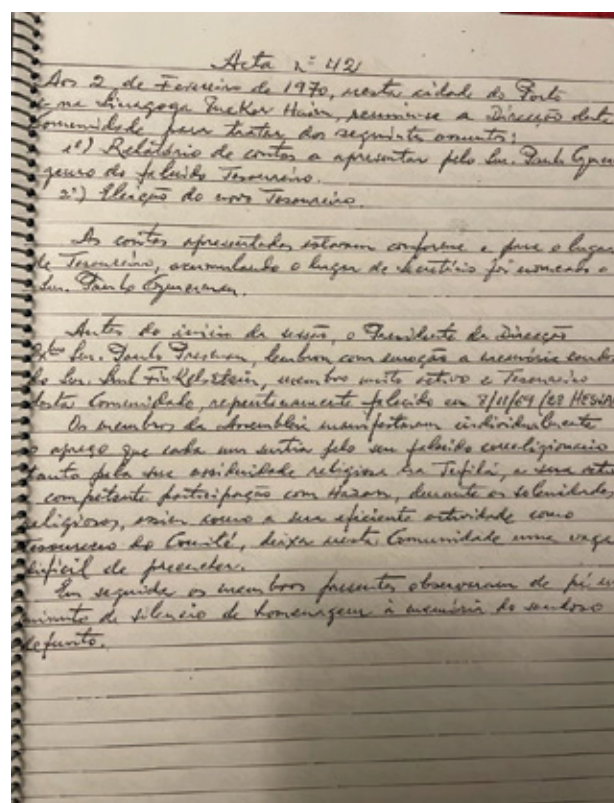 Acta nº 42
Aos 2 de Fevereiro de 1970, nesta cidade do Porto
e na Sinagoga Mekor Haim, reuniu-se a Direcção desta
Comunidade para tratar dos seguintes assuntos:
1º) Relatório de contas a apresentar pelo Snr. Paulo
do falecido Tesoureiro.
2º) Eleição do novo Tesoureiro.
As contas apresentadas estavam conforme e para o lugar
de Tesoureiro, acumulando o lugar de secretário foi nomeado o
Snr. Paulo
Antes do início da sessão, o Presidente da Direcção
Snr. Paulo Presman, lembrou com emoção a memória
do Snr. Finkelstein, membro muito activo e Tesoureiro
desta Comunidade, repentinamente falecido em
Os membros da Assembleia manifestaram individualmente
o apreço que cada um sentia pelo seu falecido correligionário
tanto pela sua assiduidade religiosa na Tefilá, a sua
e competente participação com Hazam, durante as solenidades
religiosas, assim como a sua eficiente actividade como
Tesoureiro do Comité, deixa nesta Comunidade uma vaga
difícil de preencher.
Em seguida os membros presentes observaram de pé
minuto de silencio de homenagem à memória do saudoso
defunto.